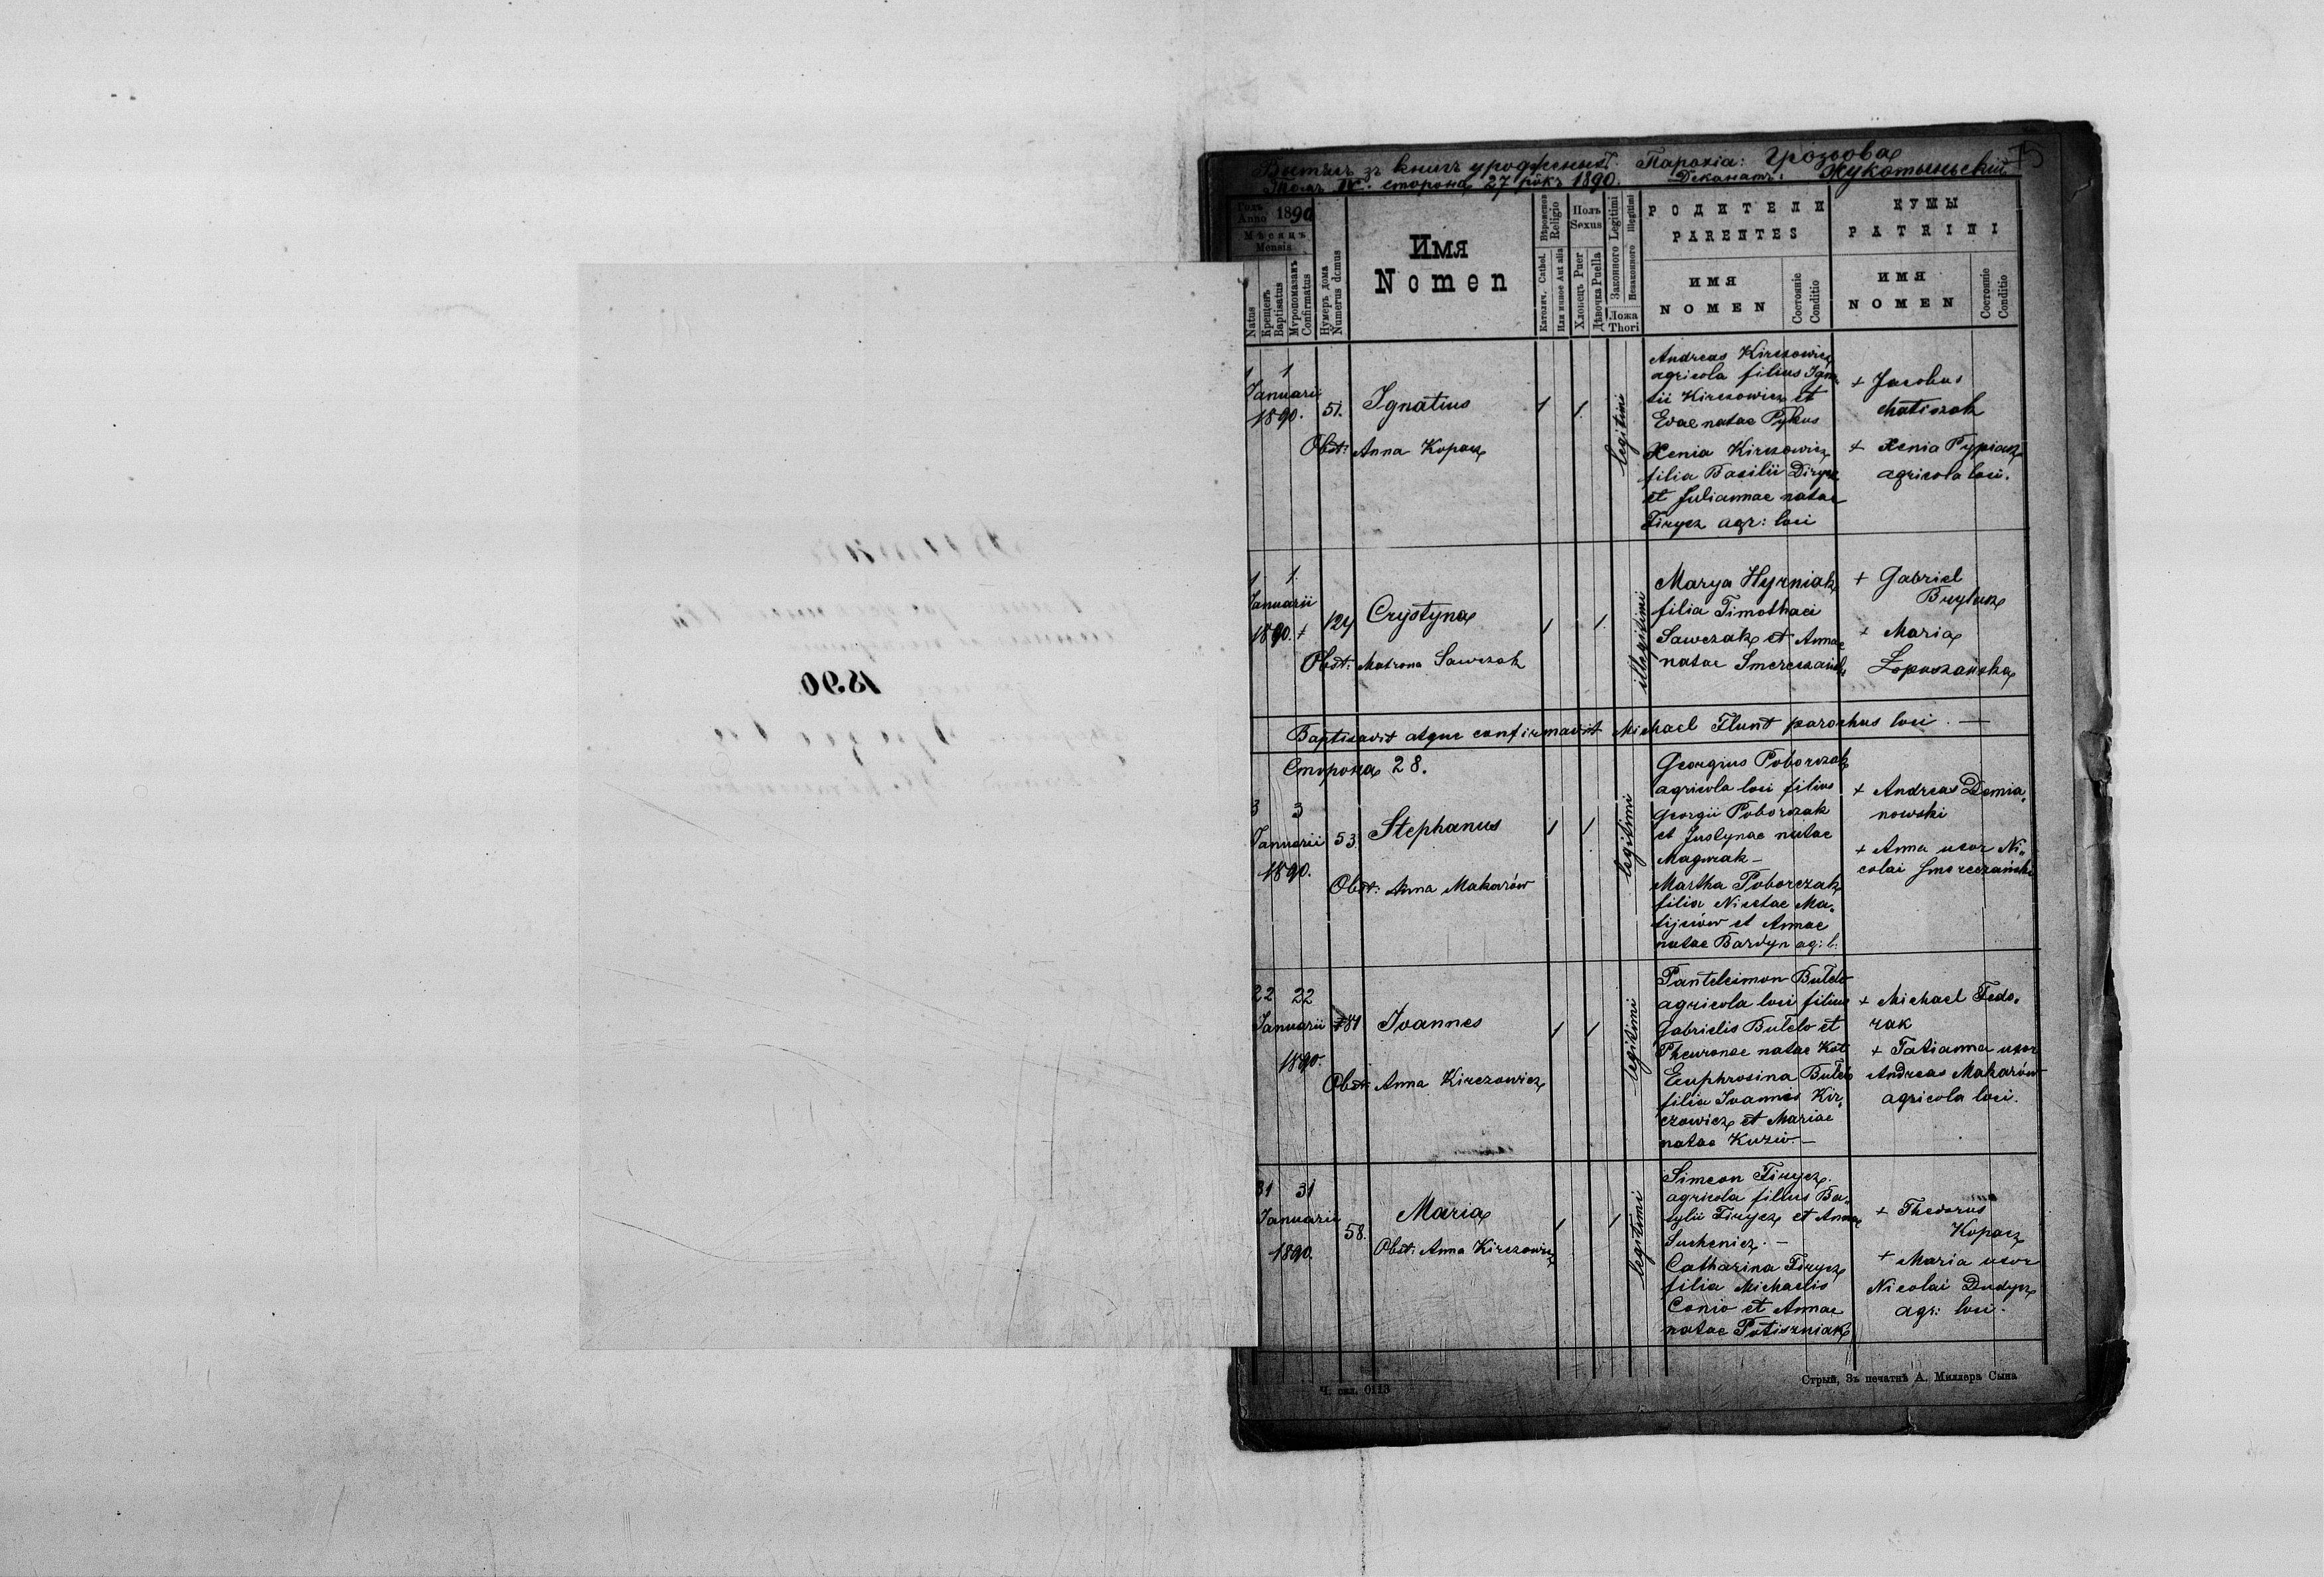 Вытягъ зъ книгъ уродженыхъ. Парохія: Грозьова
Томъ IV. сторона 27 рôкъ 1890. Деканатъ: Жукотыньскій
Годъ
Anno 1890
Мѣсяцъ
Mensis
Natus
Крещенъ
Baptisatus
Мѵропомазанъ
Confirmatus
Нумеръ дома
Numerus domus
Имя
Nomen
Religio
Католич. Cathol.
Или инное Aut alia
Полъ
Sexus
Хлопецъ Puer
Дѣвочка Puella
Законного Legitimi
Незаконного Illegitimi
Ложа
Thori
РОДИТЕЛИ
PARENTES
ИМЯ
NOMEN
Состояніе
Conditio
КУМЫ
PATRINI
ИМЯ
NOMEN
Состояніе
Conditio
1 1
Januarii
1890. 51. Ignatius 1 1 legitimi
Obst: Anna Kopacz
Andreas Kirczowicz
agricola filius Igna
tii Kirczowicz et
Evae natae Pykus
Xenia Kirczowicz
filia Basilii Dirycz
et Juliannae natae
Tirycz agr: loci
+ Jacobus
Matiszak
+ Xenia Pypiak
agricola loci.
1 1.
Januarii
1890. + 124 Crystyna 1 1. illegitimi
Obst: Matrona Sawczak
Marya Hyrniak
filia Timothaei
Sawczak et Annae
natae Smereczański
+ Gabriel
+ Maria
Łopuszańska
Baptisavit atque confirmavit Michael Flunt parochus loci. —
Сторона 28.
3 3
Januarii 53. Stephanus 1 1 legitimi
1890.
Obst: Anna Makarów
Georgius Poborczak
agricola loci filius
Georgii Poborczak
et Justynae natae
Magurak —
Martha Poborczak
filia Nicetae Ma„
tijców et Annae
natae Bardyn ag: l.
+ Andreas Demia„
nowski
+ Anna uxor Ni„
colai Smereczański
22 22
Januarii 81 Ioannes 1 1 legitimi
1890.
Obst: Anna Kirczowicz
Panteleimon Butelo
agricola loci filius
Gabrielis Butelo et
Pheuronae natae Kot
Euphrosina Butelo
filia Ioannis Kir„
czowicz et Mariae
natae Kuziv. —
+ Michael Fedo„
rak
+ Tatianna uxor
Andreas Makarów
agricola loci.
31 31
Januarii 58. Maria 1 1 legitimi
1890. Obst: Anna Kirczowicz
Simeon Tirycz
agricola filius Ba„
sylii Tirycz et Annae
Suchenicz. —
Catharina Tirycz
filia Michaelis
Conio et Annae
natae Patiszniak
+ Theodorus
Kopacz
+ Maria uxor
Nicolai Dudycz
agr: loci.
Ч. скл. 0113
Стрый, Зъ печатнѣ А. Миллера Сына
1890